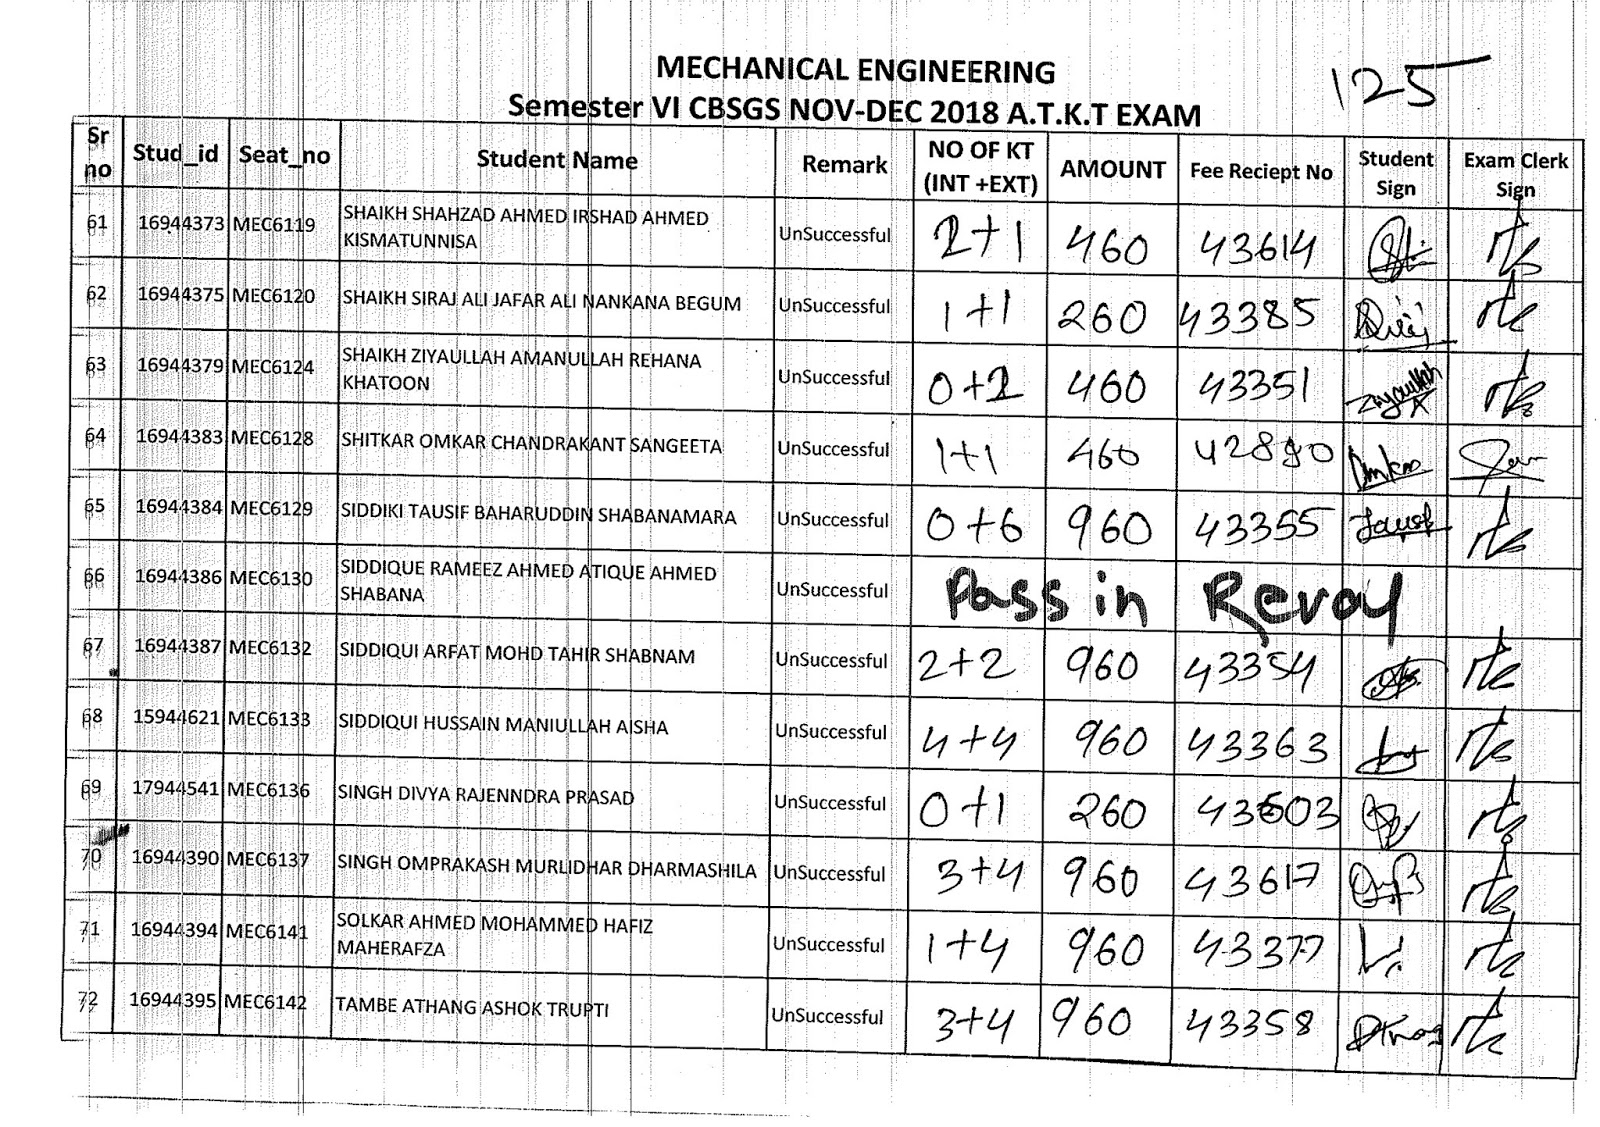 125
MECHANICAL ENGINEERING
Semester VI CBSGS NOV-DEC 2018 A.T.K.T EXAM
Sr no Stud_id Seat_no Student Name Remark NO OF KT (INT +EXT) AMOUNT Fee Reciept No Student Sign Exam Clerk Sign
61 16944373 MEC6119 SHAIKH SHAHZAD AHMED IRSHAD AHMED KISMATUNNISA UnSuccessful 2+1 460 43614
62 16944375 MEC6120 SHAIKH SIRAJ ALI JAFAR ALI NANKANA BEGUM UnSuccessful 1+1 260 43385
63 16944379 MEC6124 SHAIKH ZIYAULLAH AMANULLAH REHANA KHATOON UnSuccessful 0+2 460 43351 Ziyaullah
64 16944383 MEC6128 SHITKAR OMKAR CHANDRAKANT SANGEETA UnSuccessful 1+1 460 42890
65 16944384 MEC6129 SIDDIKI TAUSIF BAHARUDDIN SHABANAMARA UnSuccessful 0+6 960 43355
66 16944386 MEC6130 SIDDIQUE RAMEEZ AHMED ATIQUE AHMED SHABANA UnSuccessful Pass in Reval
67 16944387 MEC6132 SIDDIQUI ARFAT MOHD TAHIR SHABNAM UnSuccessful 2+2 960 43354
68 15944621 MEC6133 SIDDIQUI HUSSAIN MANIULLAH AISHA UnSuccessful 4+4 960 43363
69 17944541 MEC6136 SINGH DIVYA RAJENNDRA PRASAD UnSuccessful 0+1 260 43603
70 16944390 MEC6137 SINGH OMPRAKASH MURLIDHAR DHARMASHILA UnSuccessful 3+4 960 43617
71 16944394 MEC6141 SOLKAR AHMED MOHAMMED HAFIZ MAHERAFZA UnSuccessful 1+4 960 43377
72 16944395 MEC6142 TAMBE ATHANG ASHOK TRUPTI UnSuccessful 3+4 960 43358